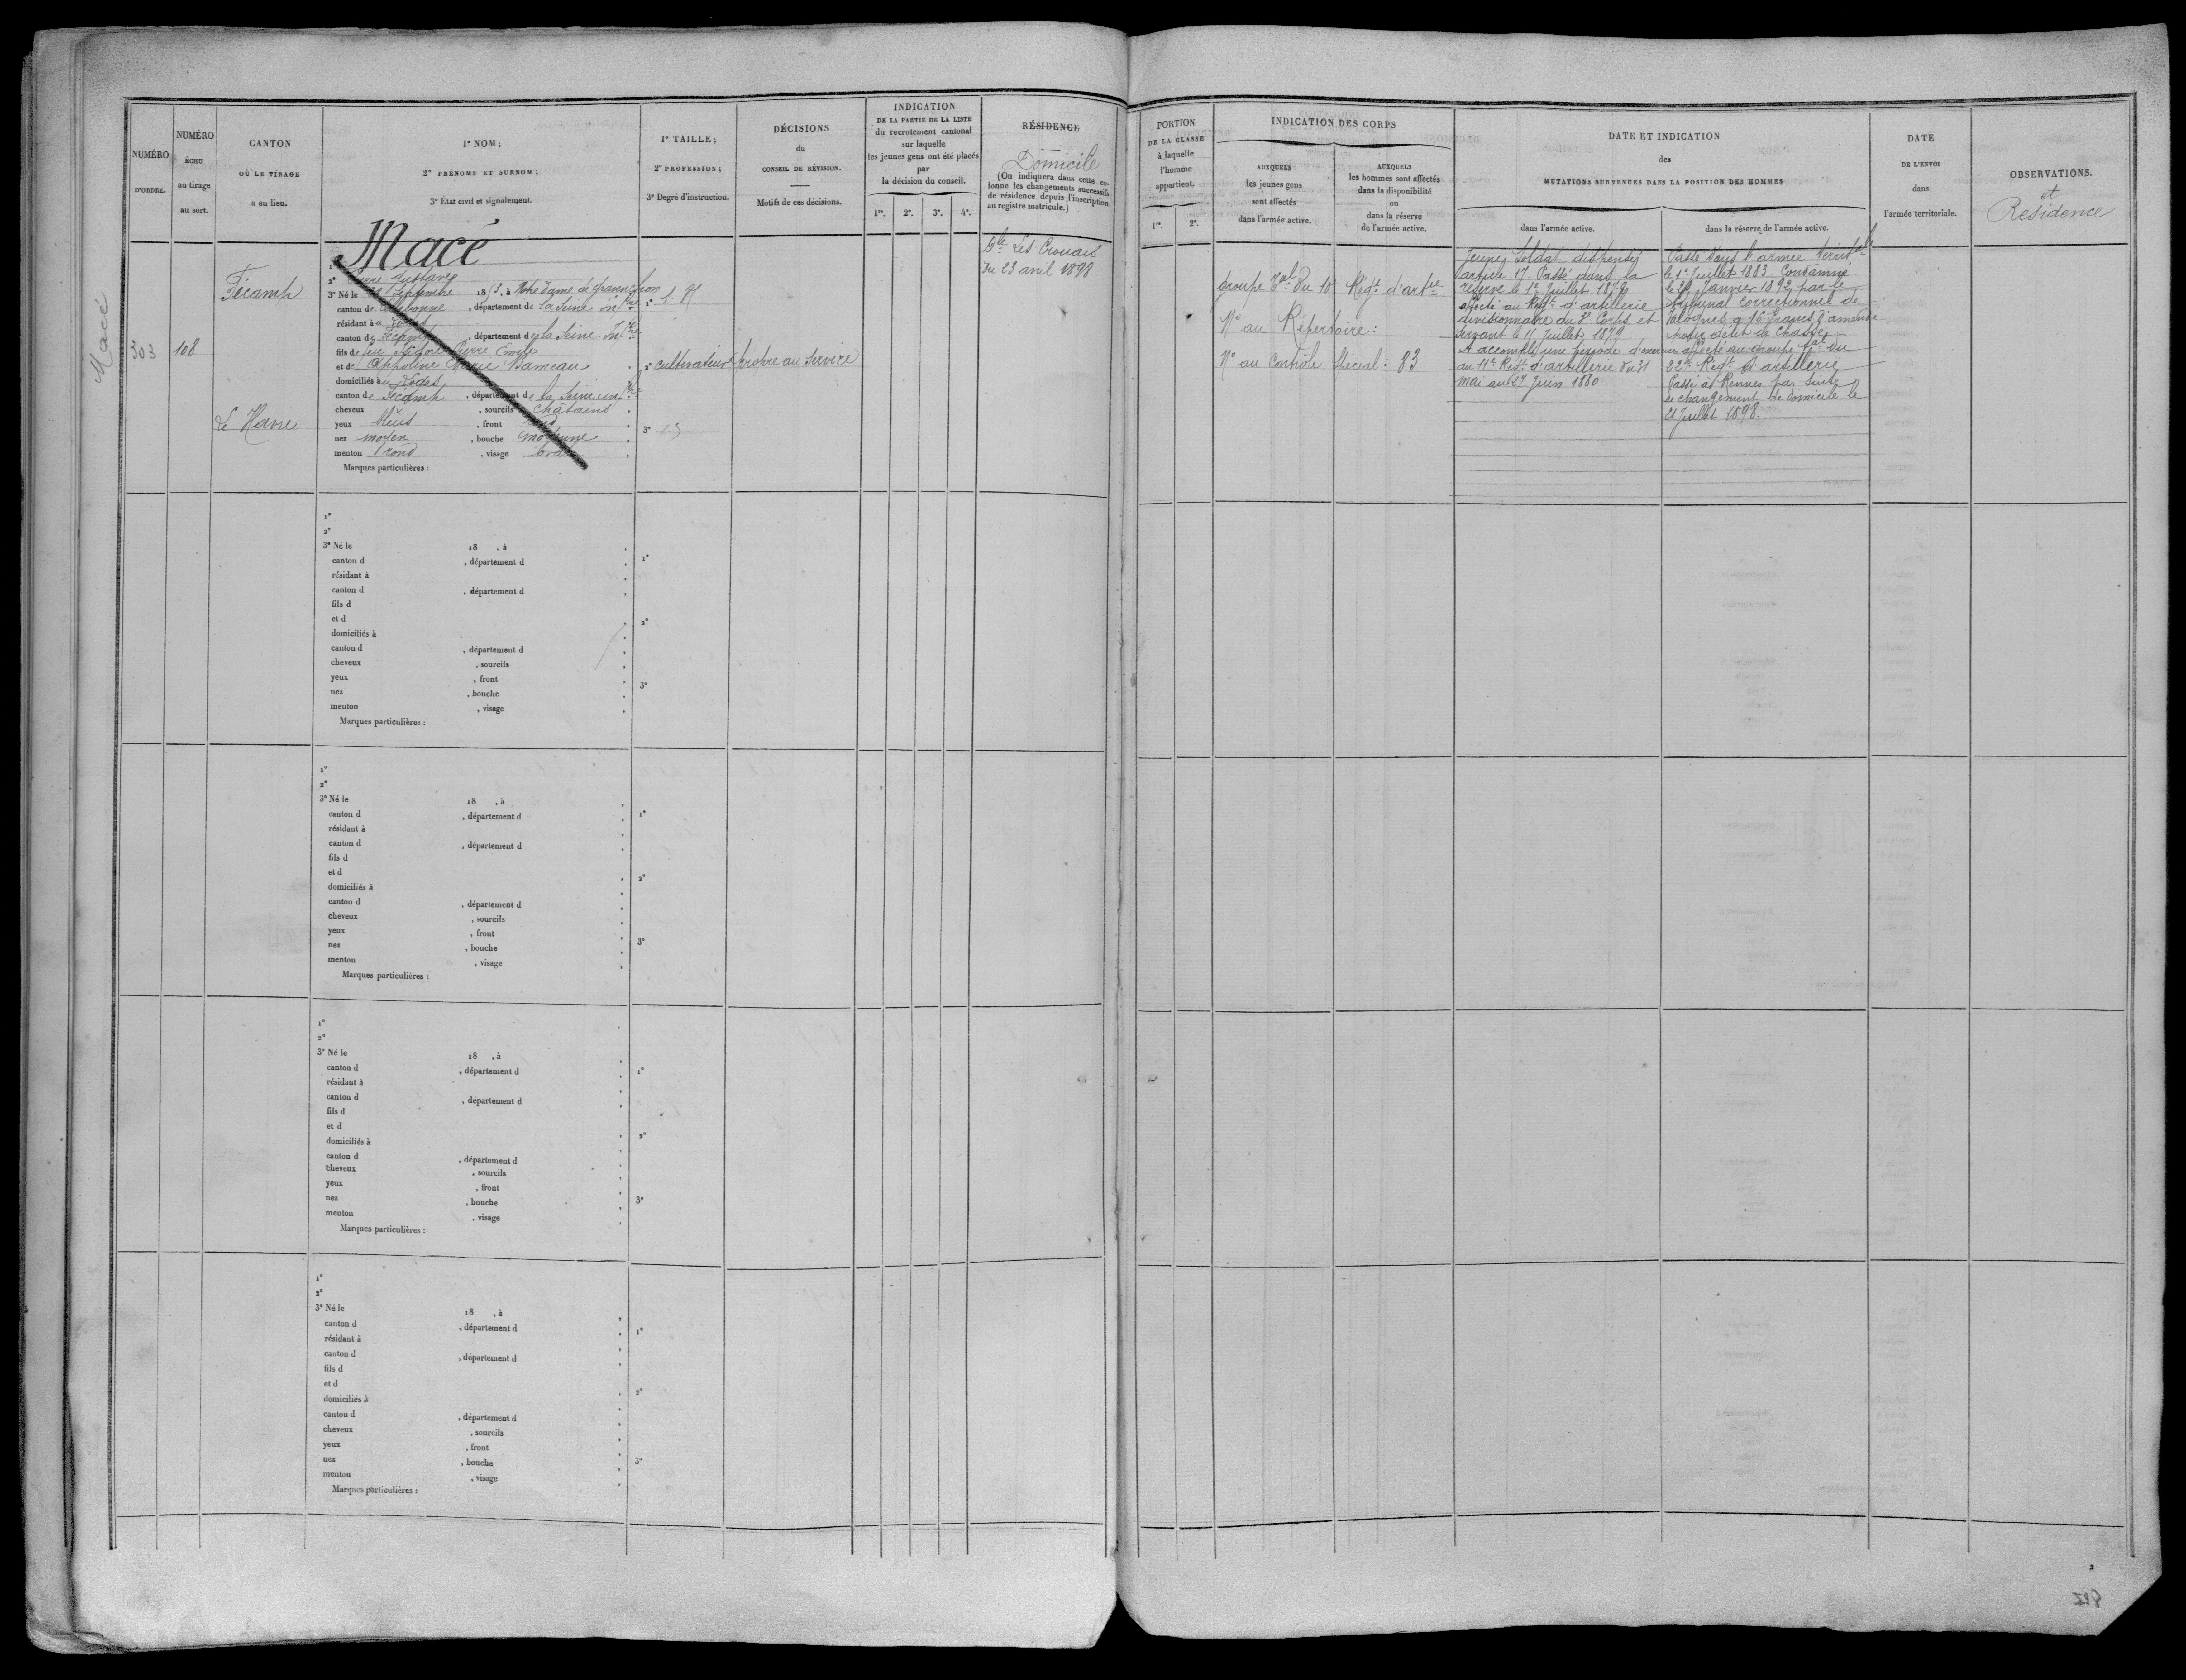 Macé
NUMÉRO
D'ORDRE.
NUMÉRO
ÉCHU
au tirage
au sort.
CANTON
OÙ LE TIRAGE
a eu lieu.
1° NOM;
2° PRÉNOMS ET SURNOM;
3° État civil et signalement.
1° TAILLE;
2° PROFESSION;
3° Degré d'instruction.
DÉCISIONS
du
CONSEIL DE RÉVISION.
Motifs de ces décisions.
INDICATION
DE LA PARTIE DE LA LISTE
du recrutement cantonal
sur laquelle
les jeunes gens ont été placés
par
la décision du conseil.
1re. 2e. 3e. 4e.
RÉSIDENCE
Domicile
(On indiquera dans cette co-
lonne les changements successifs
de résidence depuis l'inscription
au registre matricule.)
303
108
Fécamp
Le Havre
Macé
1°
2° Pierre Gustave
3° Né le Septembre 18 , à Notre Dame de Gravenchon
canton de Lillebonne , département de la Seine Infre
résidant à
canton de Fécamp , département de la Seine Infre
fils de Pierre Emile
et d' Appoline Marie Bameau
domiciliés à
canton de Fécamp , département de la Seine Infre
cheveux , sourcils châtains
yeux bleus , front rond
nez moyen , bouche moyenne
menton rond , visage ovale
Marques particulières :
1°
2° cultivateur
3°
propre au service
Dle Les Crouais
du 23 avril 1898
1°
2°
3° Né le 18 , à
canton d , département d
résidant à
canton d , département d
fils d
et d
domiciliés à
canton d , département d
cheveux , sourcils
yeux , front
nez , bouche
menton , visage
Marques particulières :
1°
2°
3°
1°
2°
3° Né le 18 , à
canton d , département d
résidant à
canton d , département d
fils d
et d
domiciliés à
canton d , département d
cheveux , sourcils
yeux , front
nez , bouche
menton , visage
Marques particulières :
1°
2°
3°
1°
2°
3° Né le 18 , à
canton d , département d
résidant à
canton d , département d
fils d
et d
domiciliés à
canton d , département d
cheveux , sourcils
yeux , front
nez , bouche
menton , visage
Marques particulières :
1°
2°
3°
1°
2°
3° Né le 18 , à
canton d , département d
résidant à
canton d , département d
fils d
et d
domiciliés à
canton d , département d
cheveux , sourcils
yeux , front
nez , bouche
menton , visage
Marques particulières :
1°
2°
3°
PORTION
DE LA CLASSE
à laquelle
l'homme
appartient.
1re. 2e.
INDICATION DES CORPS
AUXQUELS
les jeunes gens
sont affectés
dans l'armée active.
AUXQUELS
les hommes sont affectés
dans la disponibilité
ou
dans la réserve
de l'armée active.
DATE ET INDICATION
des
MUTATIONS SURVENUES DANS LA POSITION DES HOMMES
dans l'armée active.
dans la réserve de l'armée active.
DATE
DE L'ENVOI
dans
l'armée territoriale.
OBSERVATIONS.
et
Résidence
groupe tal du 10e Régt d'artie
N° au Répertoire :
N° au Contrôle Spécial : 83
Jeune Soldat dispensé
article 17. Passé dans la
réserve le 1er Juillet 1879
affecté au Régt d'artillerie
divisionnaire du 3e Corps et
servant le 11 Juillet 1879
A accompli une période d'exercices
au 11e Régt d'artillerie du 31
mai au 27 Juin 1880
Passé dans l'armée territle
le 1er Juillet 1883. Condamné
le 29 Janvier 1892 par le
tribunal correctionnel de
Valognes à 16 francs d'amende
pour délit de chasse
affecté au groupe tal du
22e Régt d'artillerie
Passé à Rennes par suite
de changement de domicile le
21 Juillet 1898.